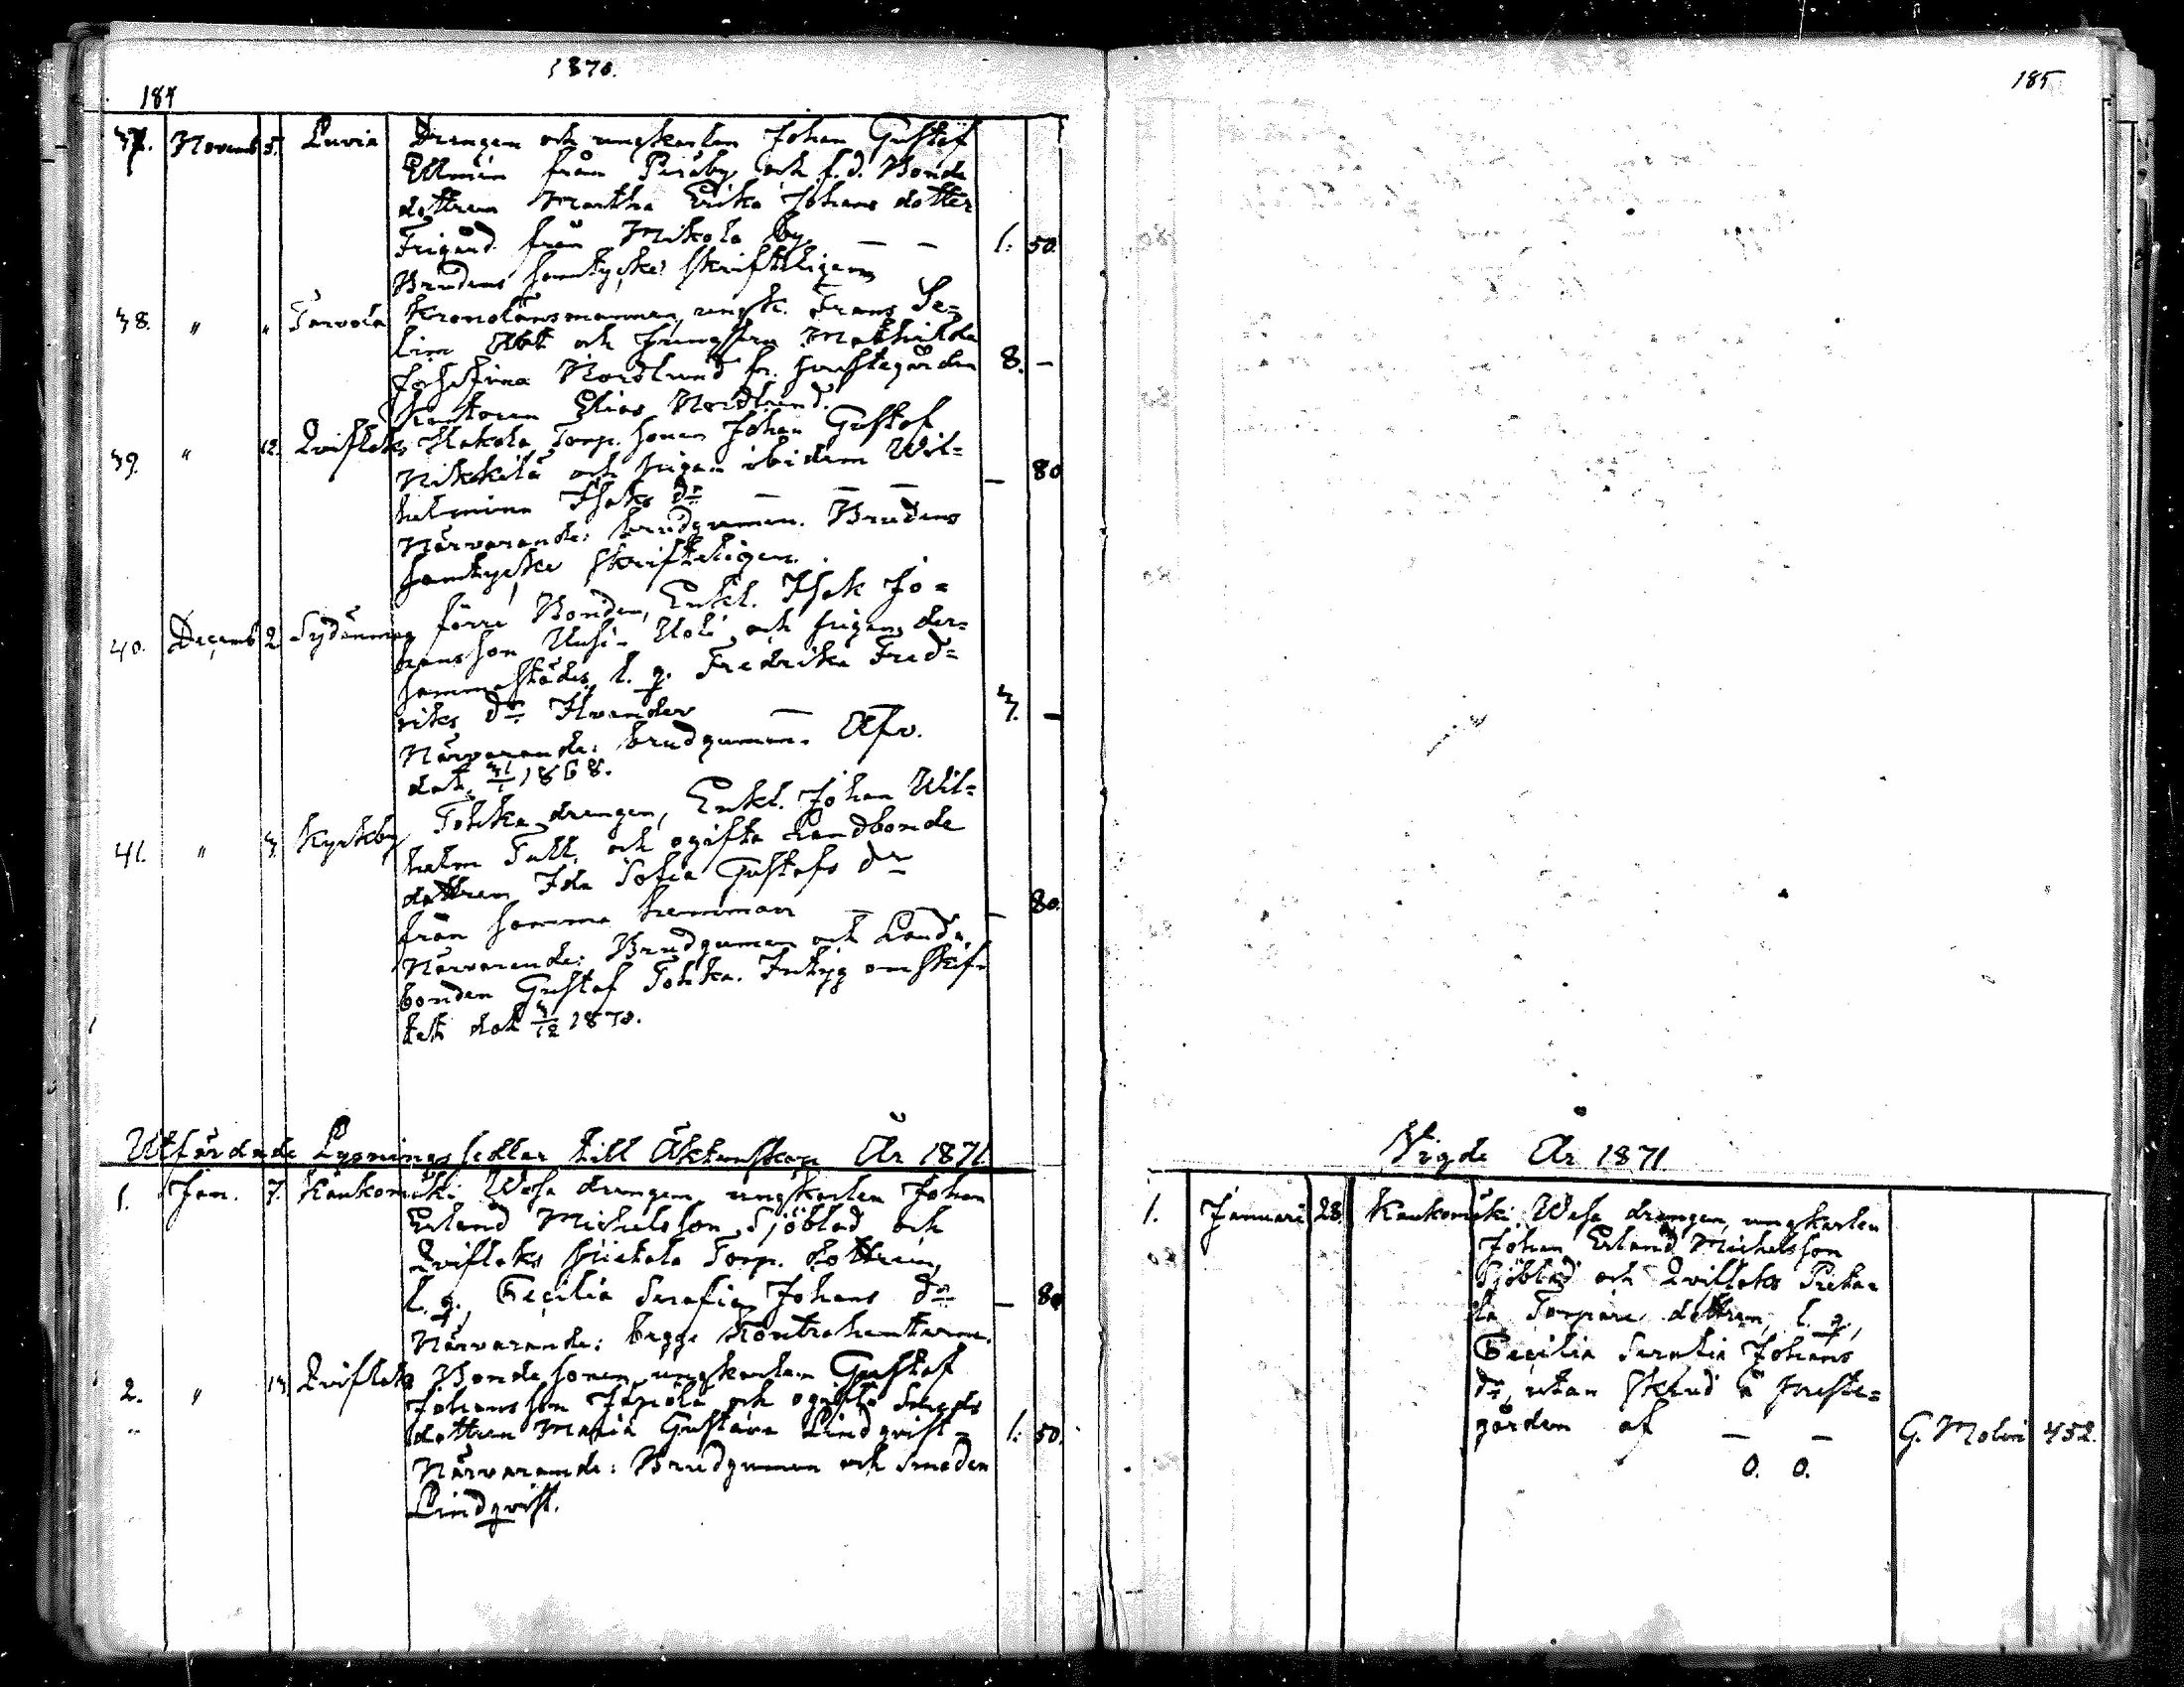 1870.
184
37. Novemb 5. Luvia Drengen och ungkarlen Johan Gustaf
Ellmén från Peräby och f.d. Bonde
dottren Martha Erika Johans dotter
Frigård från Mikola by. — — 1: 50.
Brudens samtycke skriftligen
38. " " Tarvola Kronolänsmannen, ungk. Frans Se-
lim och Jungfrun Mathilda
Josefina Nordlund fr. prestegården 8. —
Elias Nordlund.
39. " 12. Qviflaks Hakola Torp. sonen Johan Gustaf
Nikkilä och pigan ibidem Wil-
helmina Isaks dr — — — — 80
Närvarande: brudgummen. Brudens
samtycke skriftligen.
40. Decemb 2. Sydänmaa förre Bonden, Enkl. Isak Jo-
hansson Uusi- och pigan der-
sammastädes, l. q. Fredrika Fred-
riks dr Ilvander — — 3. —
Närvarande: brudgummen. Afv.
dat. 1868.
41. " 3. Kyrkby Tohka drengen, Enkl. Johan Wil-
helm Tall, och ogifta Landbonde
dottren Ida Sofia Gustafs dr
från samma hemman — — — 80.
Närvarande: Brudgummen och Land-
bonden Gustaf Tohka. Intyg om skif-
tet dat 3/12 1870.
Utfärdade Lysningssedlar till Äktenskap År 1871
1. Jan. 7. Kaukomäki Wasa drengen, ungkarlen Johan
Erland Michelsson Sjöblad och
Qviflaks Torp. dottren,
l. q., Cecilia Serafia Johans dr — 80
Närvarande: begge Kontrahenterne.
2. " 14 Qviflaks Bonde sonen, ungkarlen Gustaf
Johansson och ogifta Smeds
dottren Maria Gustava Lindqvist - 1: 50.
Närvarande: Brudgummen och Smeden
Lindqvist.
185
Vigde År 1871
1. Januari 28. Kaukomäki Wasa drengen, ungkarlen
Johan Erland Michelsson
Sjöblad och Qviflaks
Torpare dottren, l. q.,
Cecilia Serafia Johans
dr, utan skrud å preste-
gården af — — G. Molin 452.
0. 0.